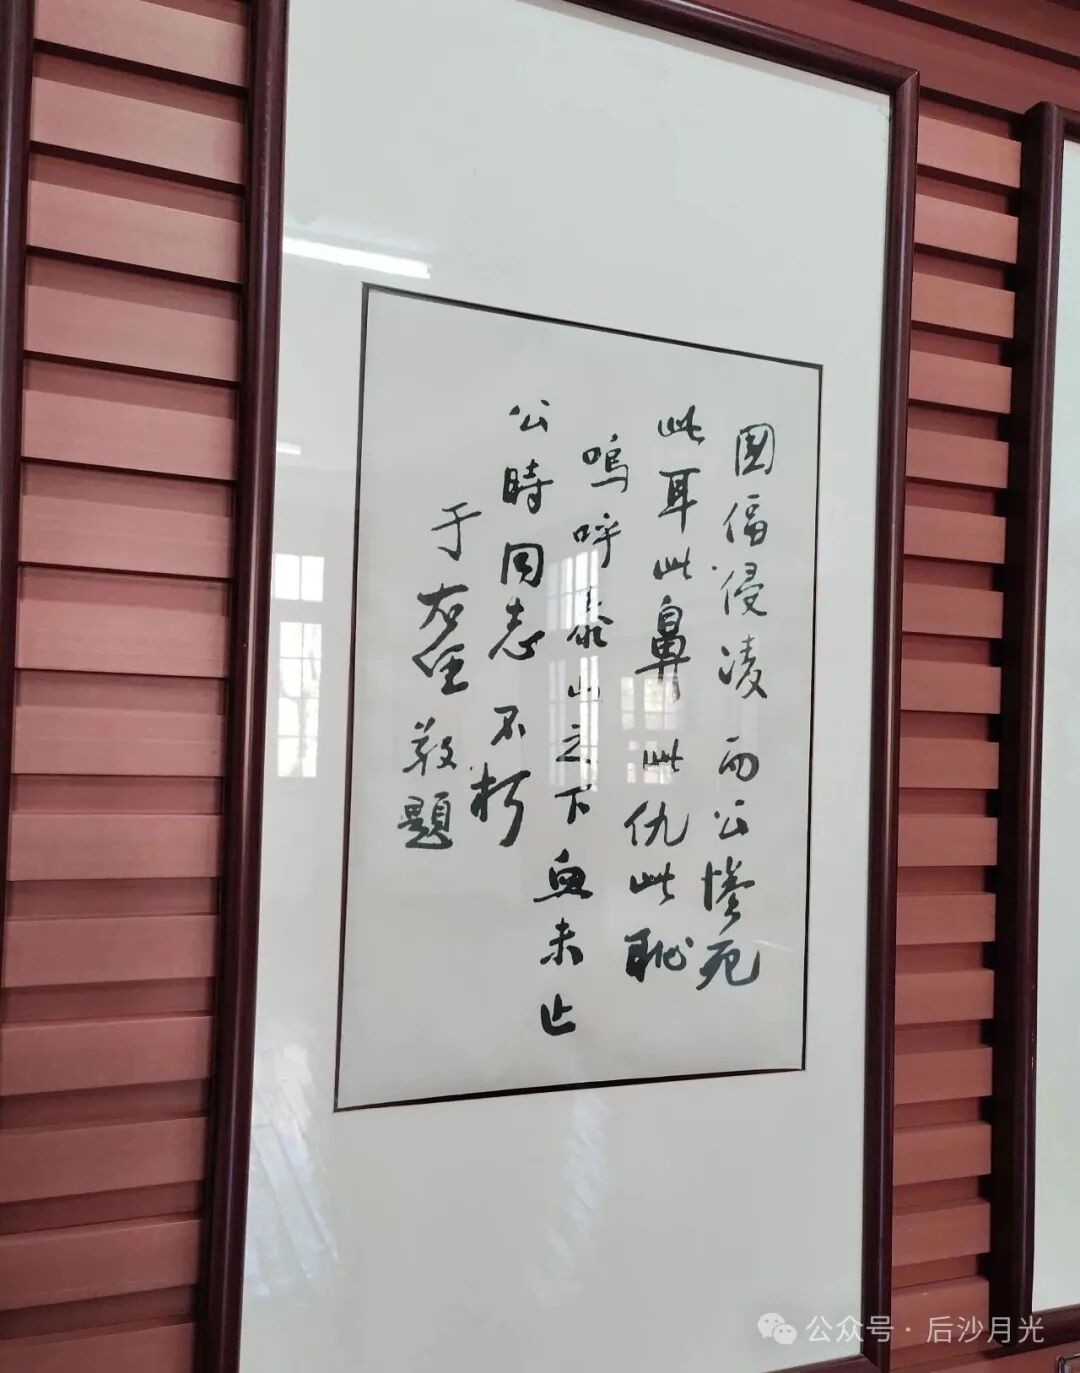 國偪侵凌而公慘死
此耳此鼻此仇此恥
嗚呼泰山之下血未止
公時同志不朽
于右任敬題
公众号·后沙月光